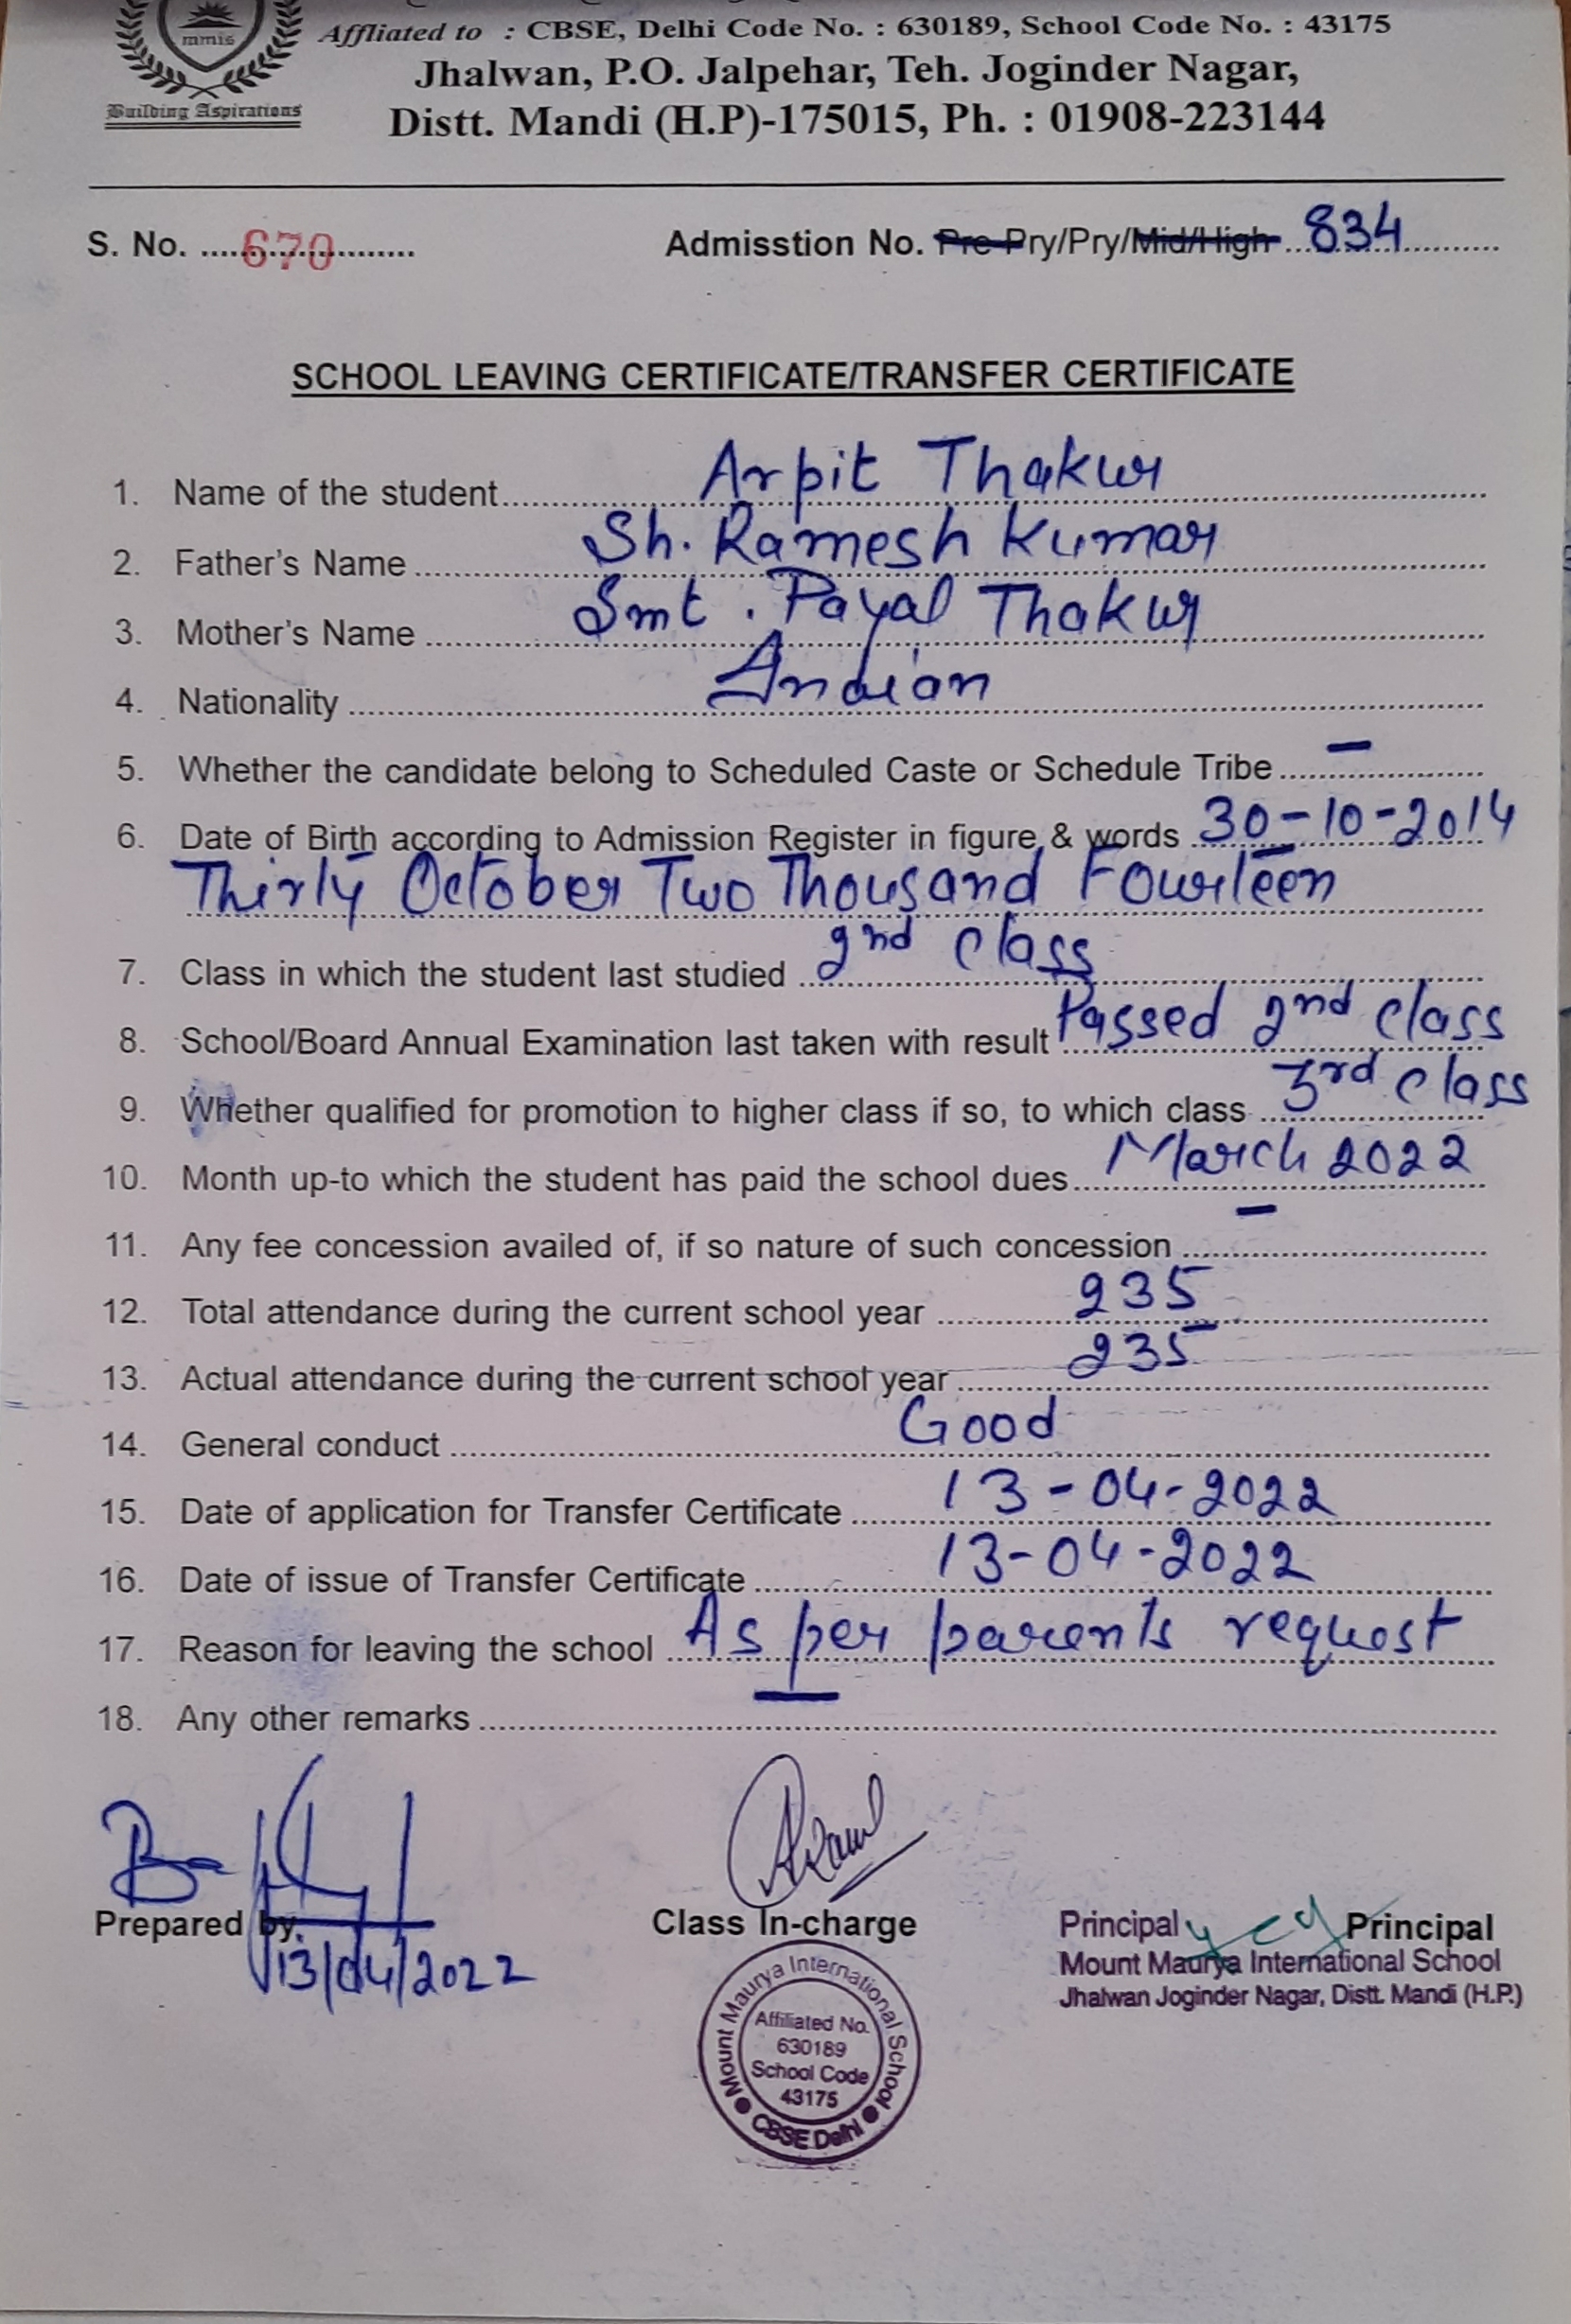 mmis
Building Aspirations
Affliated to : CBSE, Delhi Code No. : 630189, School Code No. : 43175
Jhalwan, P.O. Jalpehar, Teh. Joginder Nagar,
Distt. Mandi (H.P)-175015, Ph. : 01908-223144
S. No. ....670..........
Admisstion No. Pre-Pry/Pry/Mid/High ...834..........
SCHOOL LEAVING CERTIFICATE/TRANSFER CERTIFICATE
1. Name of the student.......... Arpit Thakur
2. Father's Name .......... Sh. Ramesh Kumar
3. Mother's Name .......... Smt. Payal Thakur
4. Nationality .......... Indian
5. Whether the candidate belong to Scheduled Caste or Schedule Tribe.... –
6. Date of Birth according to Admission Register in figure & words 30-10-2014
Thirty October Two Thousand Fourteen
7. Class in which the student last studied .... 2nd class
8. School/Board Annual Examination last taken with result Passed 2nd class
9. Whether qualified for promotion to higher class if so, to which class .... 3rd class
10. Month up-to which the student has paid the school dues.... March 2022
11. Any fee concession availed of, if so nature of such concession .... –
12. Total attendance during the current school year .... 235
13. Actual attendance during the current school year .... 235
14. General conduct .......... Good
15. Date of application for Transfer Certificate .... 13-04-2022
16. Date of issue of Transfer Certificate .... 13-04-2022
17. Reason for leaving the school .... As per parents request
18. Any other remarks .... —
Prepared by.
13/04/2022
Class In-charge
Principal
Principal
Mount Maurya International School
Jhalwan Joginder Nagar, Distt. Mandi (H.P.)
Mount Maurya International School
Affiliated No.
630189
School Code
43175
CBSE Delhi